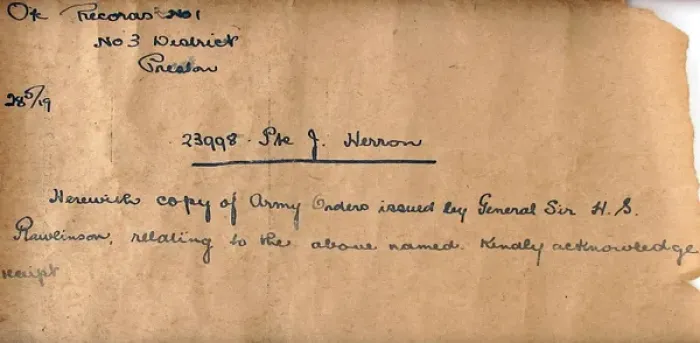 Oic Records No 1
No 3 District
Preston
28/5/19
23998 . Pte J. Herron
Herewith copy of Army Orders issued by General Sir H. S.
Rawlinson, relating to the above named. Kindly acknowledge
receipt